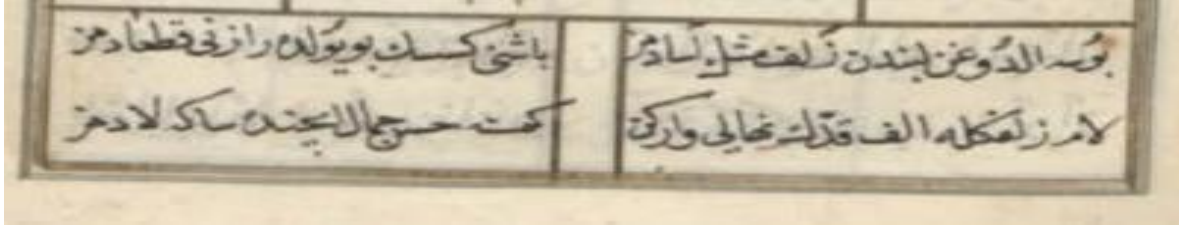 بوسه الدوغن لبندن زلف مشك آسا دمز باشنی کسسك بو یولده رازنی قطعا دمز
لام زلفكله الف قدّك نهالی وارکن کمسه حسن جمال ایچنده ساكه لا دمز